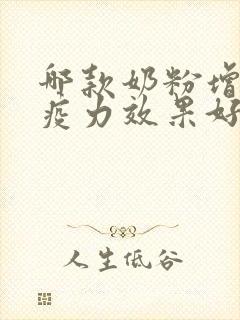 哪款奶粉增
疫力效果好
人生低谷